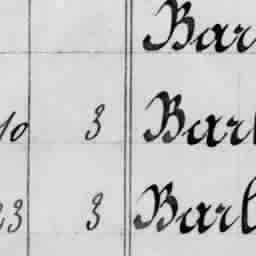 Bar
10 3 Barl
23 3 Barl